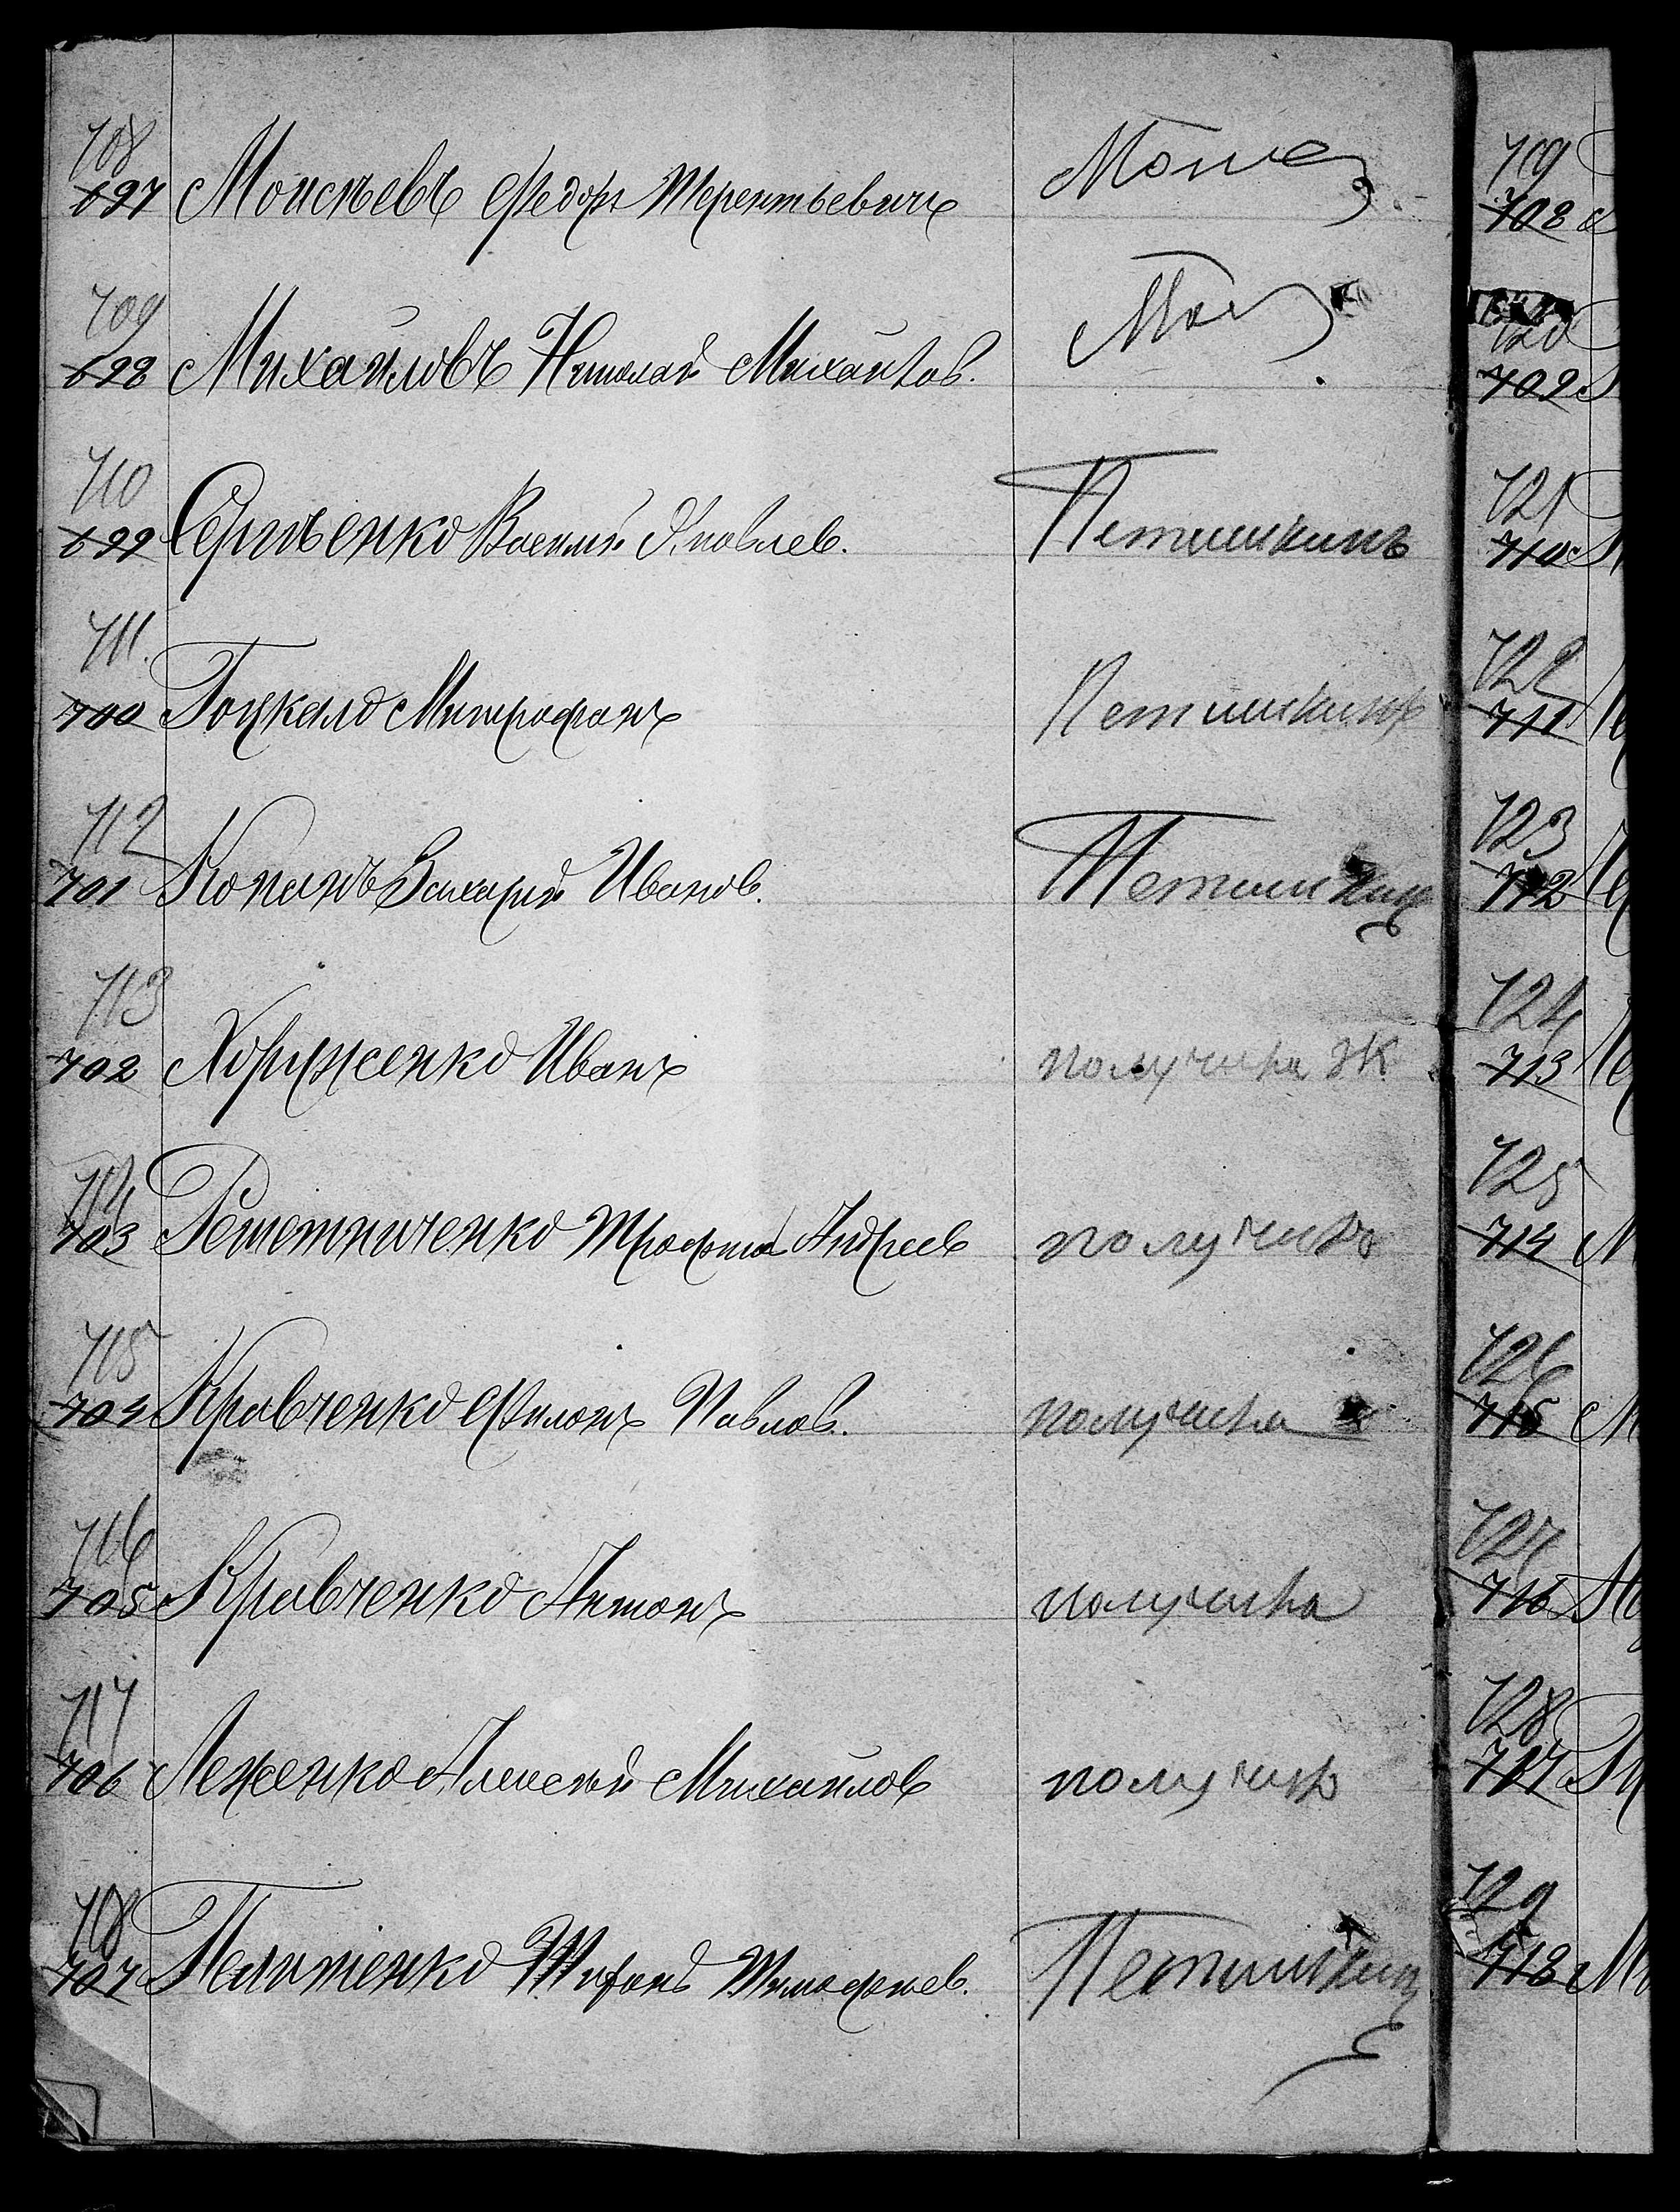 708
697 Моисѣевъ Ѳедоръ Терентьевичъ Моисе
709
698 Михайловъ Николай Михайлов.
710
699 Сергѣенко Василій Яковлев. Петишкинъ
711.
700 Гоцкало Митрофанъ Петишкинъ
712
701 Копанъ Захарій Иванов. Петишкин
713
702 Хоруженко Иванъ получила
714
703 Решетниченко Трофимъ Андреев получилъ
715
704 Кравченко Филонъ Павлов. получила
716
705 Кравченко Антонъ получила
717
706 Леженко Алексѣй Михайлов получилъ
718
707 Пелипенко Тихонъ Тимофѣев. Петишкин
719
708
720
709
721
710
722
711
723
712
724
713
725
714
726
715
727
716
728
717
729
718